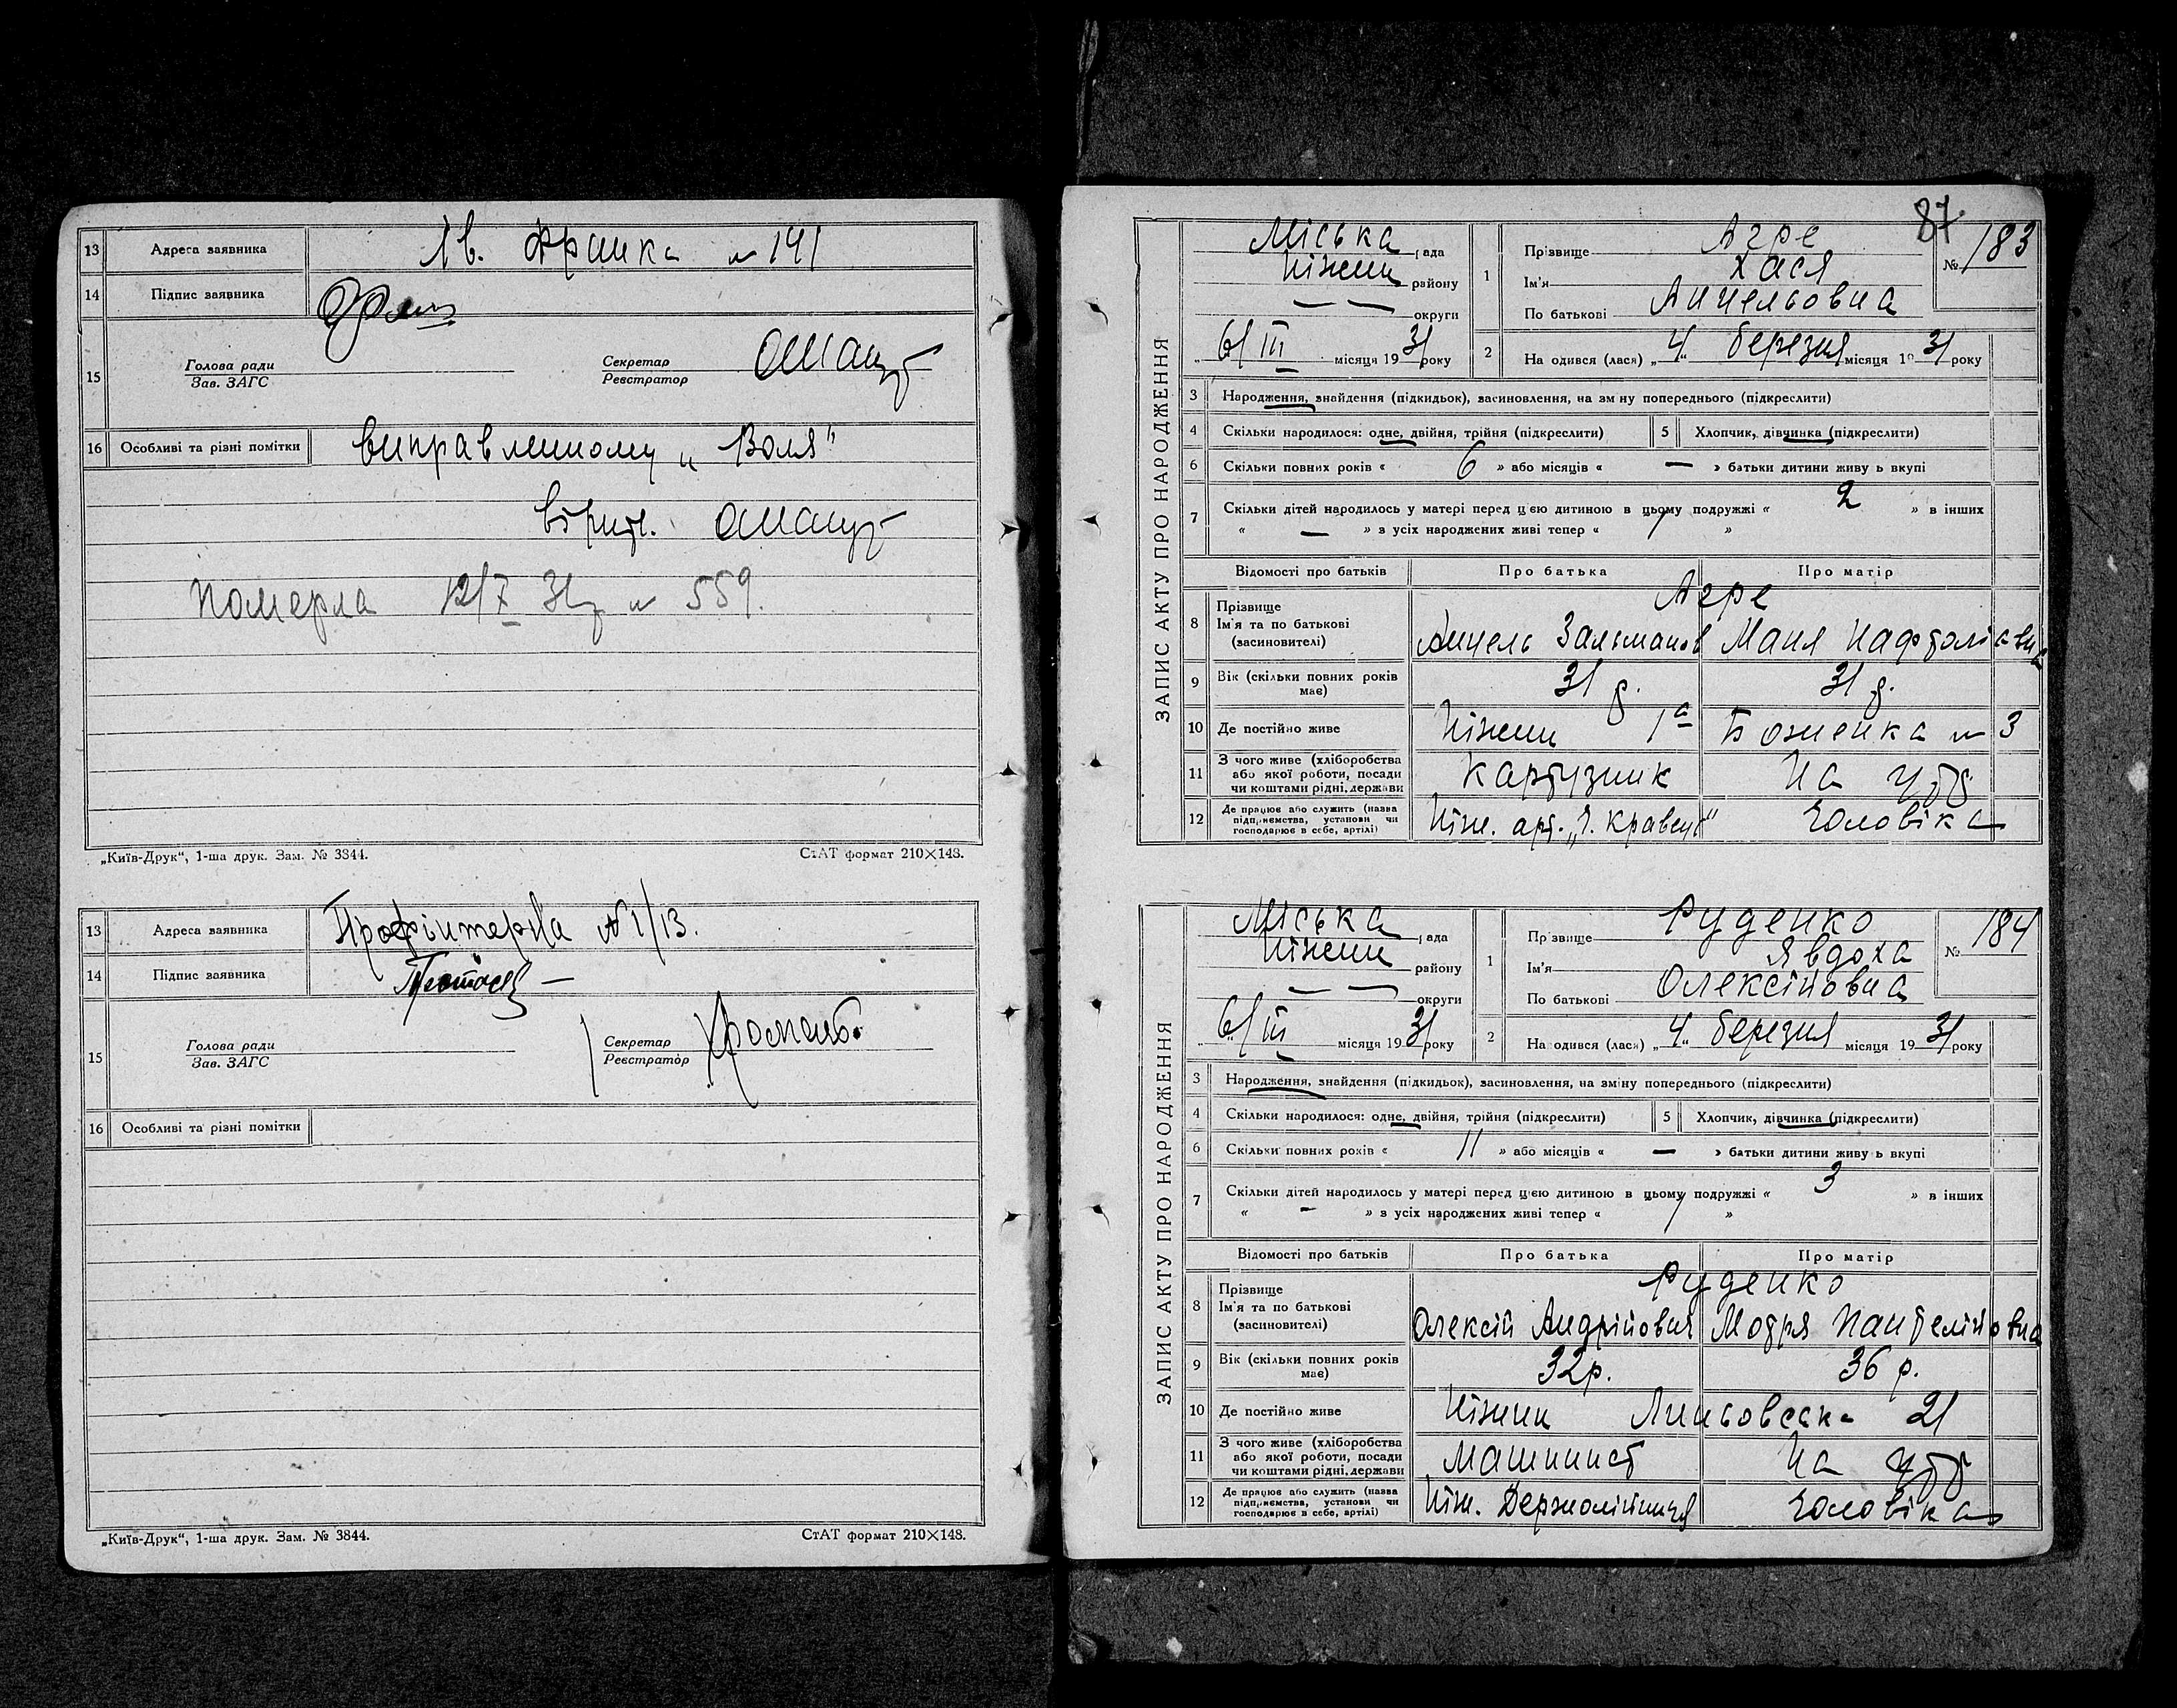 13 Адреса заявника Ів. Франка № 141
14 Підпис заявника
15 Голова ради Секретар
Зав. ЗАГС Реєстратор
16 Особливі та різні помітки виправленому „Воля"
Померла 12/X 31 р № 559.
„Київ-Друк“, 1-ша друк. Зам. № 3844. СтАТ формат 210×148.
13 Адреса заявника Профінтерна № 1/13.
14 Підпис заявника
15 Голова ради Секретар
Зав. ЗАГС Реєстратор
16 Особливі та різні помітки
„Київ-Друк“, 1-ша друк. Зам. № 3844. СтАТ формат 210×148.
87
ЗАПИС АКТУ ПРО НАРОДЖЕННЯ
Міська рада
Ніжин району
— — округи
„ 6/III місяця 1931 року
1 Прізвище Агре № 183
Ім'я Хася
По батькові Анчельовна
2 На одився (лася) „ 4 „ березня місяця 1931 року
3 Народження, знайдення (підкидьок), засиновлення, на зміну попереднього (підкреслити)
4 Скільки народилося: одне, двійня, трійня (підкреслити) 5 Хлопчик, дівчинка (підкреслити)
6 Скільки повних років « 6 » або місяців « — » батьки дитини живу ь вкупі
7 Скільки дітей народилось у матері перед цією дитиною в цьому подружжі « 2 » в інших
« — » з усіх народжених живі тепер « 1 »
Відомості про батьків Про батька Про матір
8 Прізвище Агре
Ім'я та по батькові Анчель Зальманов Маня Нафталіовна
(засиновителі)
9 Вік (скільки повних років має) 31 р. 31 р.
10 Де постійно живе Ніжин 1а Боженка № 3
11 З чого живе (хліборобства Картузник На утр
або якої роботи, посади
чи коштами рідні, держави
12 Де працює або служить (назва Ніж. арт. „Ч. Кравець" чоловіка
підприємства, установи чи
господарює в себе, артілі)
ЗАПИС АКТУ ПРО НАРОДЖЕННЯ
Міська рада
Ніжин району
— — округи
„ 6/III місяця 1931 року
1 Прізвище Руденко № 184
Ім'я Явдоха
По батькові Олексійовна
2 На одився (лася) „ 4 „ березня місяця 1931 року
3 Народження, знайдення (підкидьок), засиновлення, на зміну попереднього (підкреслити)
4 Скільки народилося: одне, двійня, трійня (підкреслити) 5 Хлопчик, дівчинка (підкреслити)
6 Скільки повних років « 11 » або місяців « — » батьки дитини живу ь вкупі
7 Скільки дітей народилось у матері перед цією дитиною в цьому подружжі « 3 » в інших
« — » з усіх народжених живі тепер « 1 »
Відомості про батьків Про батька Про матір
8 Прізвище Руденко
Ім'я та по батькові Олексій Андрійович Мотря Пантелійовна
(засиновителі)
9 Вік (скільки повних років має) 32 р. 36 р.
10 Де постійно живе Ніжин 21
11 З чого живе (хліборобства Машинист На утр
або якої роботи, посади
чи коштами рідні, держави
12 Де працює або служить (назва Ніж. Держолійниця чоловіка
підприємства, установи чи
господарює в себе, артілі)